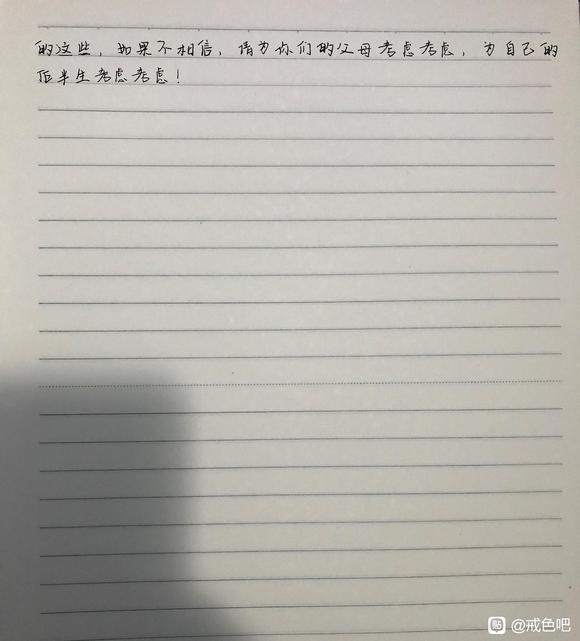 的这些，如果不相信，请为你们的父母考虑考虑，为自己的
后半生考虑考虑！
贴 @戒色吧